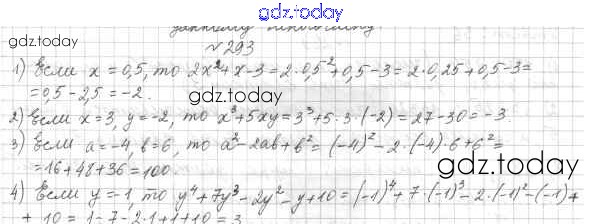 gdz.today
gdz.today
№293
1) Если x = 0,5, то 2x² + x - 3 = 2·0,5² + 0,5 - 3 = 2·0,25 + 0,5 - 3 =
= 0,5 - 2,5 = -2.
gdz.today
2) Если x = 3, y = -2, то x³ + 5xy = 3³ + 5·3·(-2) = 27 - 30 = -3.
3) Если a = -4, b = 6, то a² - 2ab + b² = (-4)² - 2·(-4)·6 + 6² =
= 16 + 48 + 36 = 100.
gdz.today
4) Если y = -1, то y⁴ + 7y³ - 2y² - y + 10 = (-1)⁴ + 7·(-1)³ - 2·(-1)² - (-1) +
+ 10 = 1 - 7 - 2·1 + 1 + 10 = 3
gdz.today